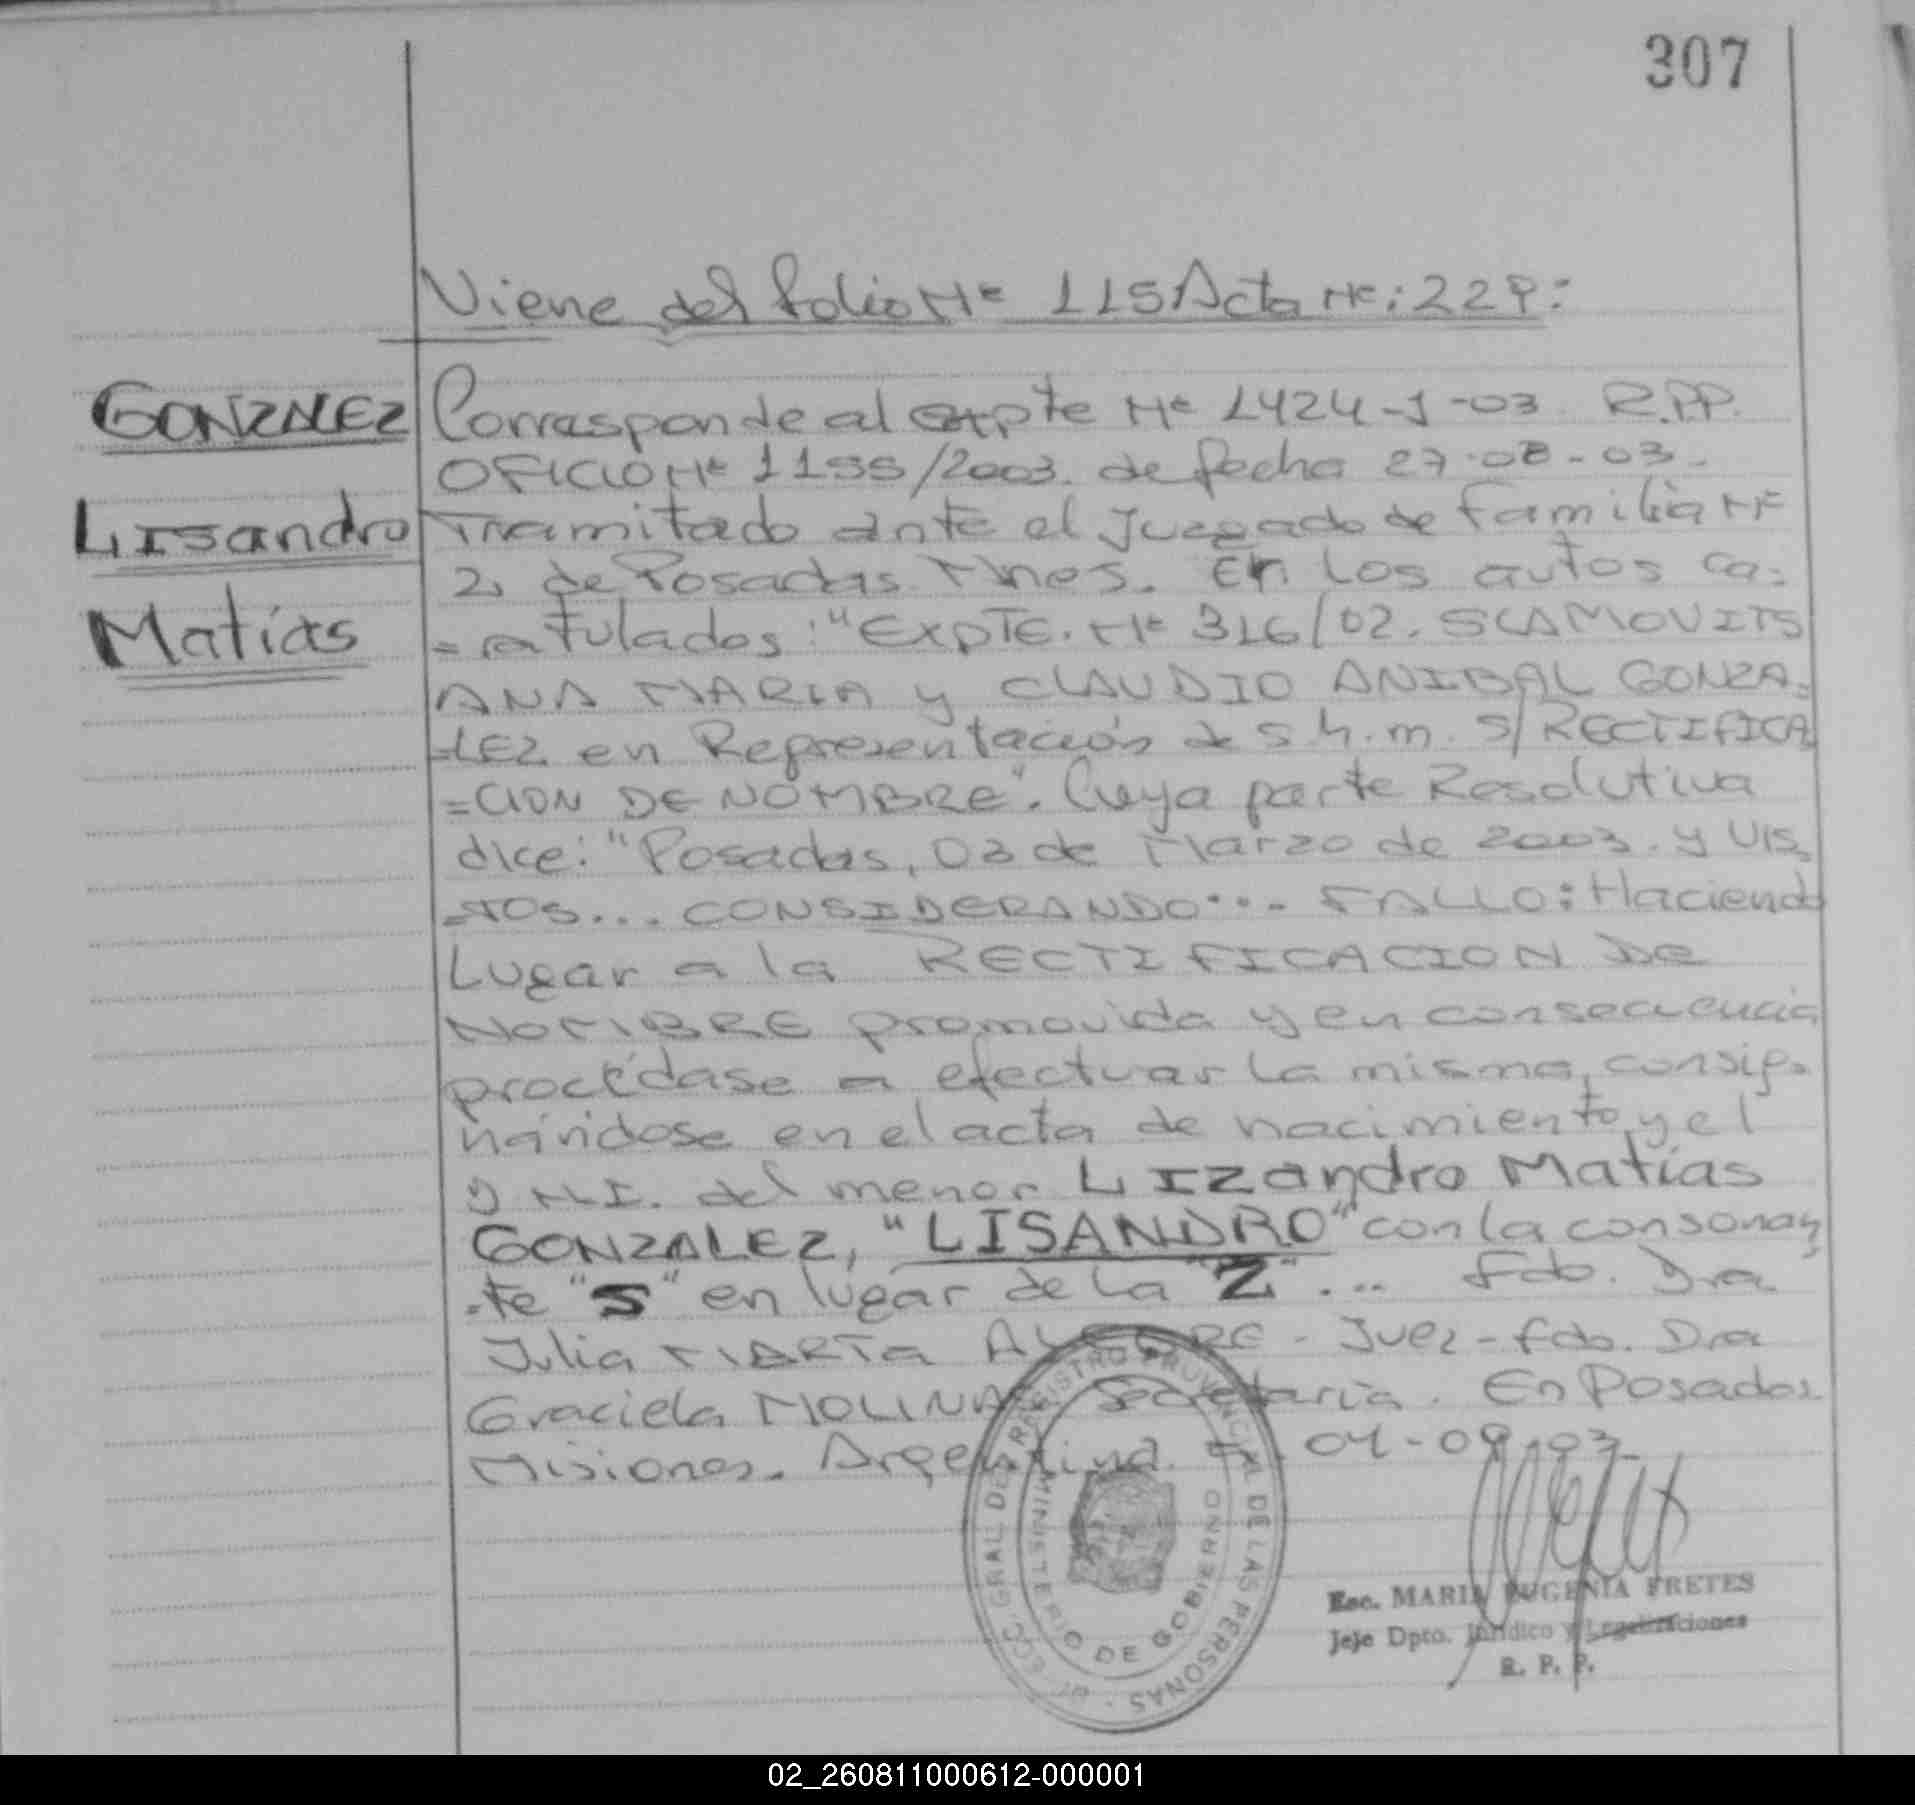 307
Viene del folio Nº 115 Acta Nº: 229:
GONZALEZ
Lisandro
Matías
Corresponde al expte Nº 1424-J-03 R.P.P.
OFICIO Nº 1155/2003. de fecha 27-08-03-
Tramitado ante el Juzgado de Familia Nº
2, de Posadas Mnes. En Los autos ca=
=ratulados: "EXPTE. Nº 316/02. SLAMOVITS
ANA MARIA y CLAUDIO ANIBAL GONZA=
=LEZ en Representación de s.h.m. S/RECTIFICA
=CION DE NOMBRE". Cuya parte Resolutiva
dice: "Posadas, 03 de Marzo de 2003. y VIS=
=TOS... CONSIDERANDO... FALLO: Haciendo
Lugar a la RECTIFICACION DE
NOMBRE promovida y en consecuencia
procédase a efectuar la misma, consig=
nándose en el acta de nacimiento y el
D.N.I. del menor LIZandro Matías
GONZALEZ, "LISANDRO" con la consonan
=te "S" en lugar de la "Z"... Fdo. Dra
Julia MARTA ALEGRE - Juez - fdo. Dra
Graciela MOLINA Secretaria. En Posadas
Misiones. Argentina 04-09-03-
GRAL DEL REGISTRO PROVINCIAL DE LAS PERSONAS
MINISTERIO DE GOBIERNO
Esc. MARIA EUGENIA FRETES
Jefe Dpto. Jurídico y Legalizaciones
R. P. P.
02_260811000612-000001